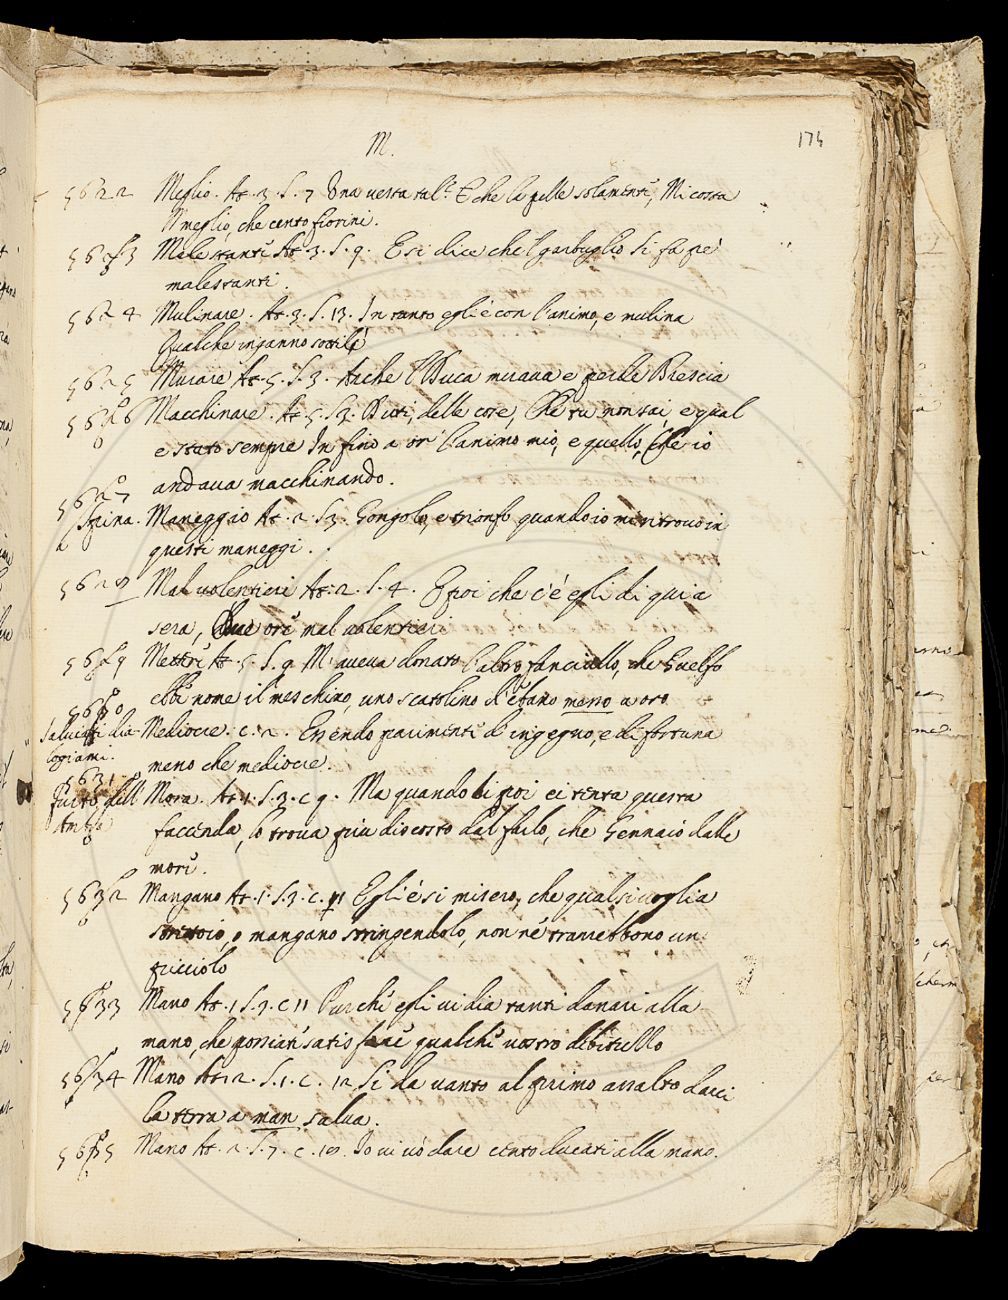 M.
174
5622 Meglio. At. 3. S. 7 Una vesta tal. E che la pelle solamente, Mi costa
Il meglio, che cento fiorini.
5623 Malestanti At. 3. S. 9. E si dice che 'l garbuglio si fa pe'
malestanti.
5624 Mulinare. At. 3. S. 13. In tanto egli è con l'animo, e mulina
Qualche inganno sottile
5625 Murare At. 5. S. 3. Anche 'l Duca murava e perdè Brescia
5626 Macchinare. At. 5. S. 3. Diuti, delle cose, Che tu non sai, e qual
e stato sempre In fino a or l'animo mio, e quello, Che io
andava macchinando.
5627
Spina. Maneggio At. 2. S. 3. Gongolo, e trionfo quando io mi ritrovo in
questi maneggi.
5628 Mal volentieri At. 2. S. 4. E poi che c'è egli di qui a
sera, Due ore mal volentieri
5629 Mettere At. 5. S. 9 M'aveva donato l'altro fanciullo, che Guelfo
ebbe nome il meschino, uno scatolino d'ebano messo a oro
5630
Salviati dia- Mediocre. c. 2. Essendo parimente d'ingegno, e di fortuna
logi ami. meno che mediocre.
5631
furto dell Mora. At. 1. S. 3. c 9. Ma quando di poi ei tenta questa
Ambra faccenda, lo trova più discosto dal farlo, che Gennaio dalle
more.
5632 Mangano At. 1. S. 3. c. 11 Egli è sì misero, che qualsivoglia
strettoio, o mangano stringendolo, non ne trarrebbono un
picciolo
5633 Mano At. 1 S. 9. c 11 Pur che egli vi dia tanti danari alla
mano, che possiate satisfare qualche vostro debituello
5634 Mano At. 2. S. 1. c. 12 Si da vanto al primo assalto darci
la terra a man salva.
5635 Mano At. 2. S. 7. c. 18. Io vi vo' dare cento ducati alla mano.